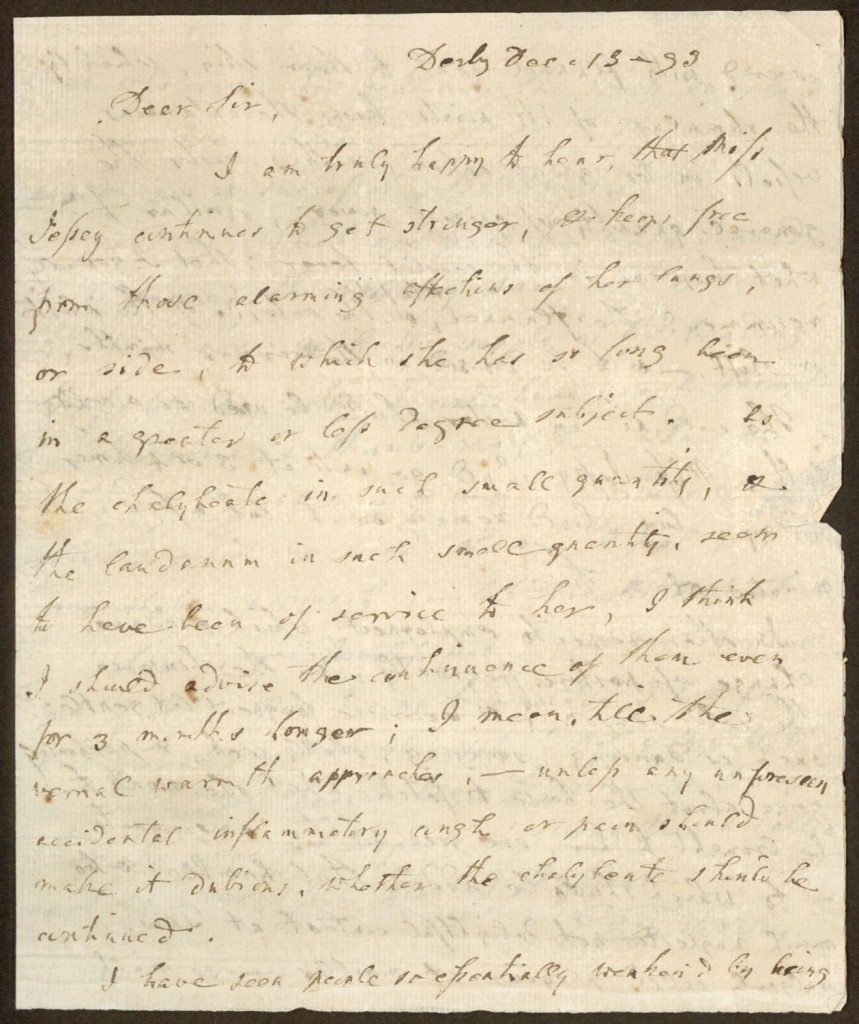 Derby Dec. 13 - 93
Dear Sir,
I am truly happy to hear, that Miss
Jessey continues to get stronger, & keeps free
from those alarming affections of her lungs,
or side, to which she has so long been
in a greater or less degree subject. As
the chalybeate in such small quantity, &
the laudanum in such small quantity, seem
to have been of service to her, I think
I should advise the continuence of them even
for 3 months longer; I mean, till the
vernal warmth approaches, - unless any unforeseen
accidental inflammatory cough or pain should
make it dubious, whether the chalybeate should be
continued.
I have seen people so essentially weaken'd by being